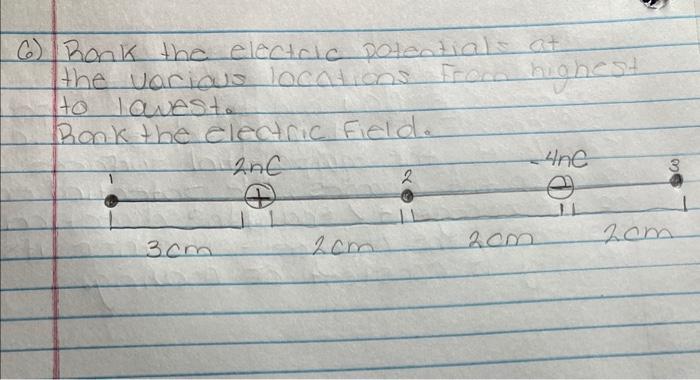 6) Rank the electric potentials at
the various locations from highest
to lowest.
Rank the electric field.
1 2nC 2 -4nC 3
+ −
3cm 2cm 2cm 2cm